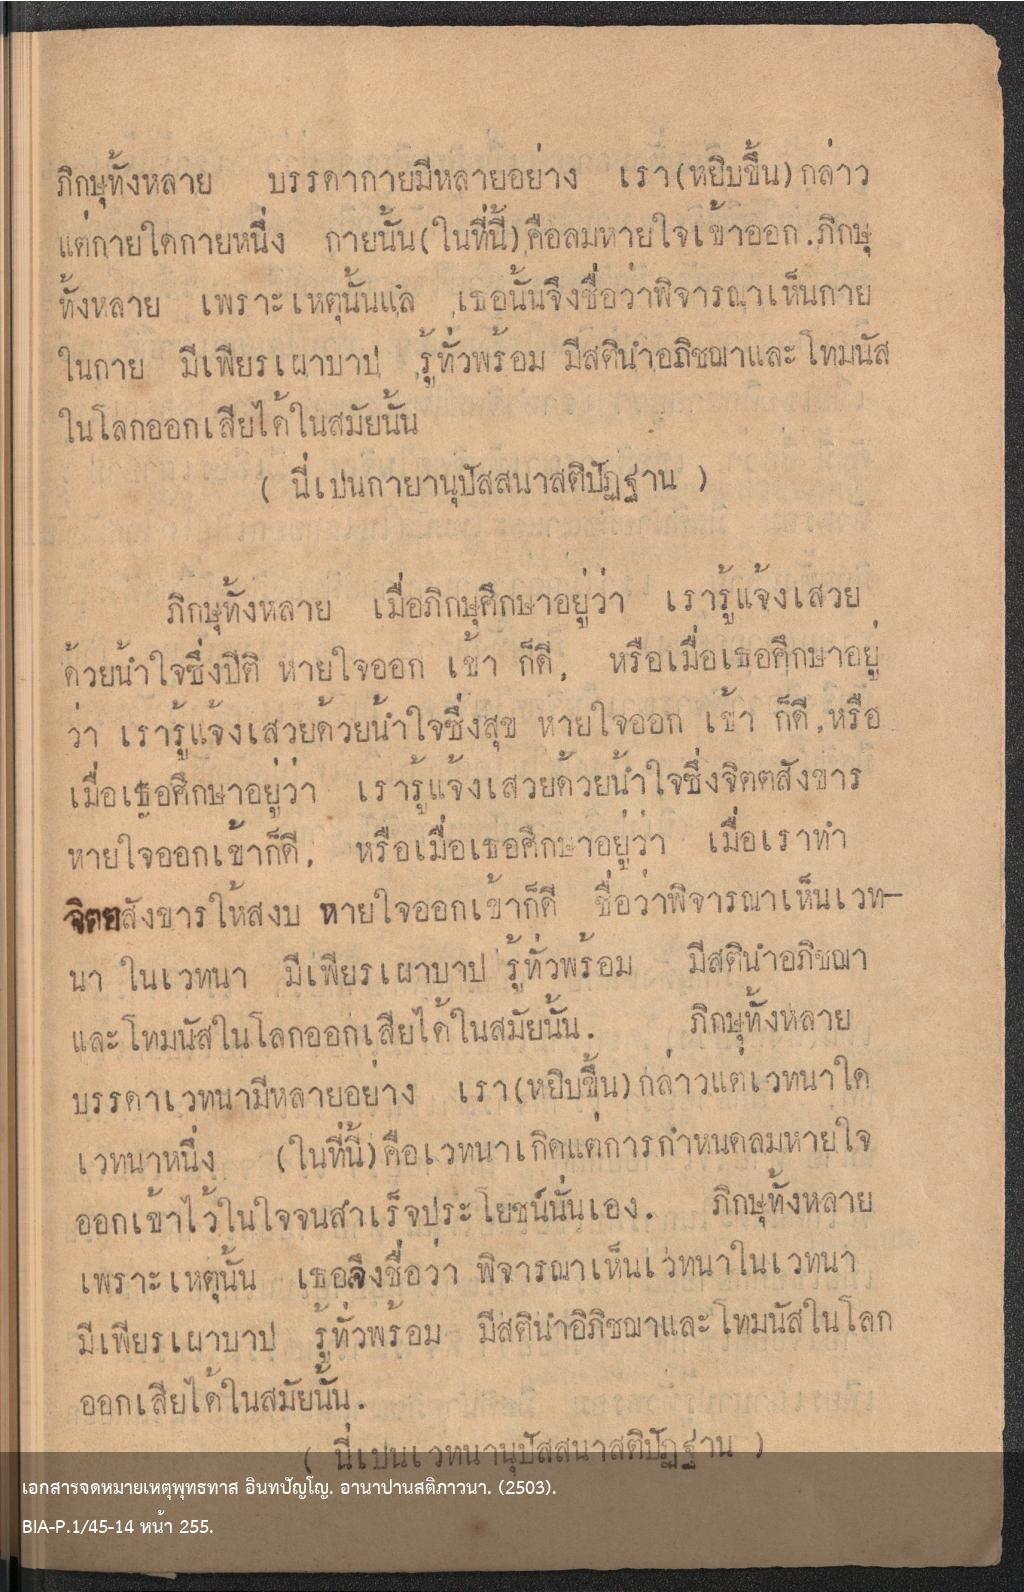 ภิกษุทั้งหลาย บรรดากายมีหลายอย่าง เรา(หยิบขึ้น)กล่าว
แต่กายใดกายหนึ่ง กายนั้น(ในที่นี้)คือลมหายใจเข้าออก.ภิกษุ
ทั้งหลาย เพราะเหตุนั้นแล เธอนั้นจึงชื่อว่าพิจารณาเห็นกาย
ในกาย มีเพียรเผาบาป รู้ทั่วพร้อม มีสตินำอภิชฌาและโทมนัส
ในโลกออกเสียได้ในสมัยนั้น
( นี่เปนกายานุปัสสนาสติปัฏฐาน )
ภิกษุทั้งหลาย เมื่อภิกษุศึกษาอยู่ว่า เรารู้แจ้งเสวย
ด้วยน้ำใจซึ่งปีติ หายใจออก เข้า ก็ดี, หรือเมื่อเธอศึกษาอยู่
ว่า เรารู้แจ้งเสวยด้วยน้ำใจซึ่งสุข หายใจออก เข้า ก็ดี,หรือ
เมื่อเธอศึกษาอยู่ว่า เรารู้แจ้งเสวยด้วยน้ำใจซึ่งจิตตสังขาร
หายใจออกเข้าก็ดี, หรือเมื่อเธอศึกษาอยู่ว่า เมื่อเราทำ
จิตตสังขารให้สงบ หายใจออกเข้าก็ดี ชื่อว่าพิจารณาเห็นเวท-
นา ในเวทนา มีเพียรเผาบาป รู้ทั่วพร้อม มีสตินำอภิชฌา
และโทมนัสในโลกออกเสียได้ในสมัยนั้น. ภิกษุทั้งหลาย
บรรดาเวทนามีหลายอย่าง เรา(หยิบขึ้น)กล่าวแต่เวทนาใด
เวทนาหนึ่ง (ในที่นี้)คือเวทนาเกิดแต่การกำหนดลมหายใจ
ออกเข้าไว้ในใจจนสำเร็จประโยชน์นั่นเอง. ภิกษุทั้งหลาย
เพราะเหตุนั้น เธอจึงชื่อว่า พิจารณาเห็นเวทนาในเวทนา
มีเพียรเผาบาป รู้ทั่วพร้อม มีสตินำอิภิชฌาและโทมนัสในโลก
ออกเสียได้ในสมัยนั้น.
( นี่เปนเวทนานุปัสสนาสติปัฏฐาน )
เอกสารจดหมายเหตุพุทธทาส อินทปัญโญ. อานาปานสติภาวนา. (2503).
BIA-P.1/45-14 หน้า 255.